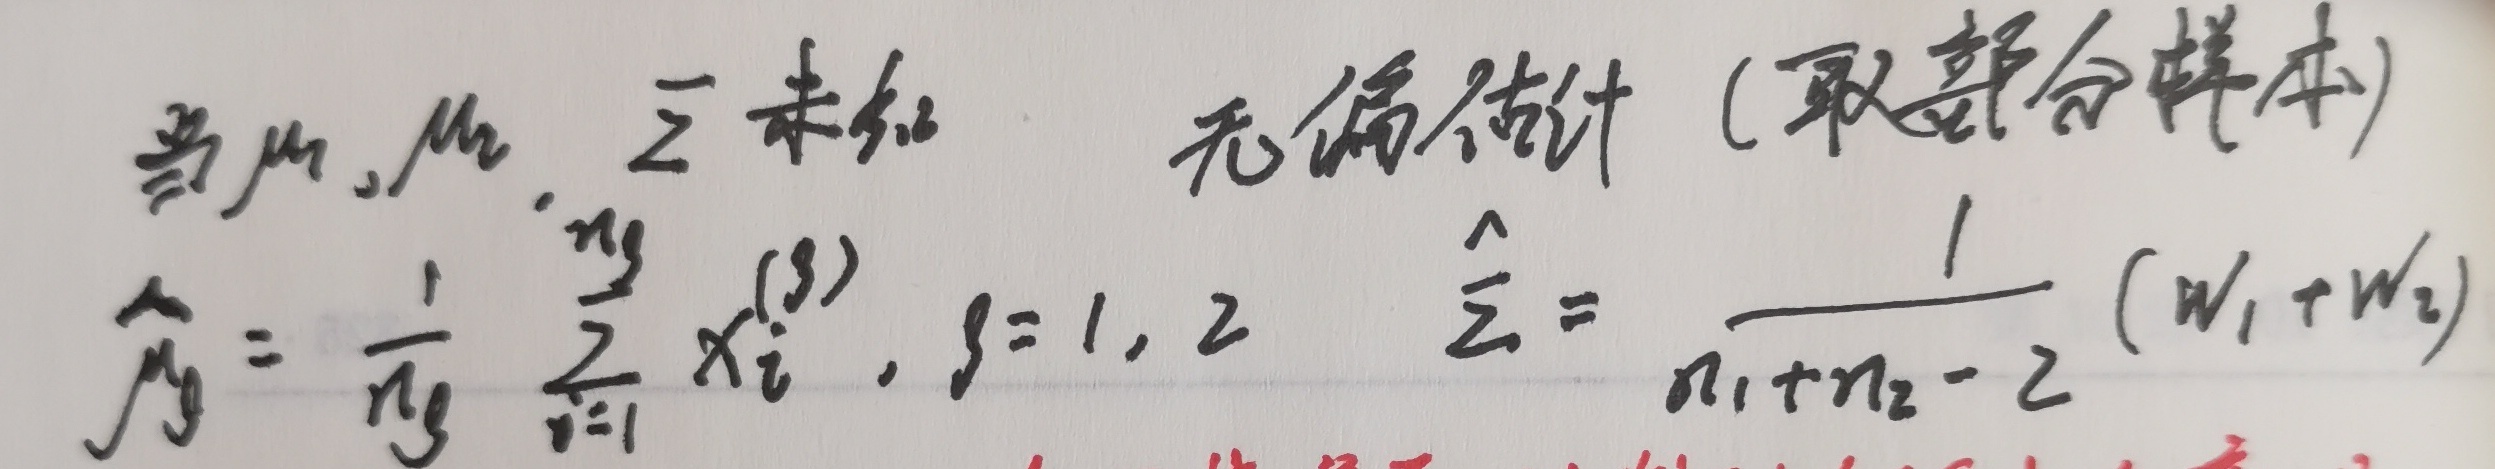 当μ₁, μ₂, Σ未知 无偏估计 (取部分样本)
μ̂_g = 1/n_g Σ_{i=1}^{n_g} x_i^{(g)}, g=1, 2 Σ̂ = 1/(n₁+n₂-2) (W₁+W₂)